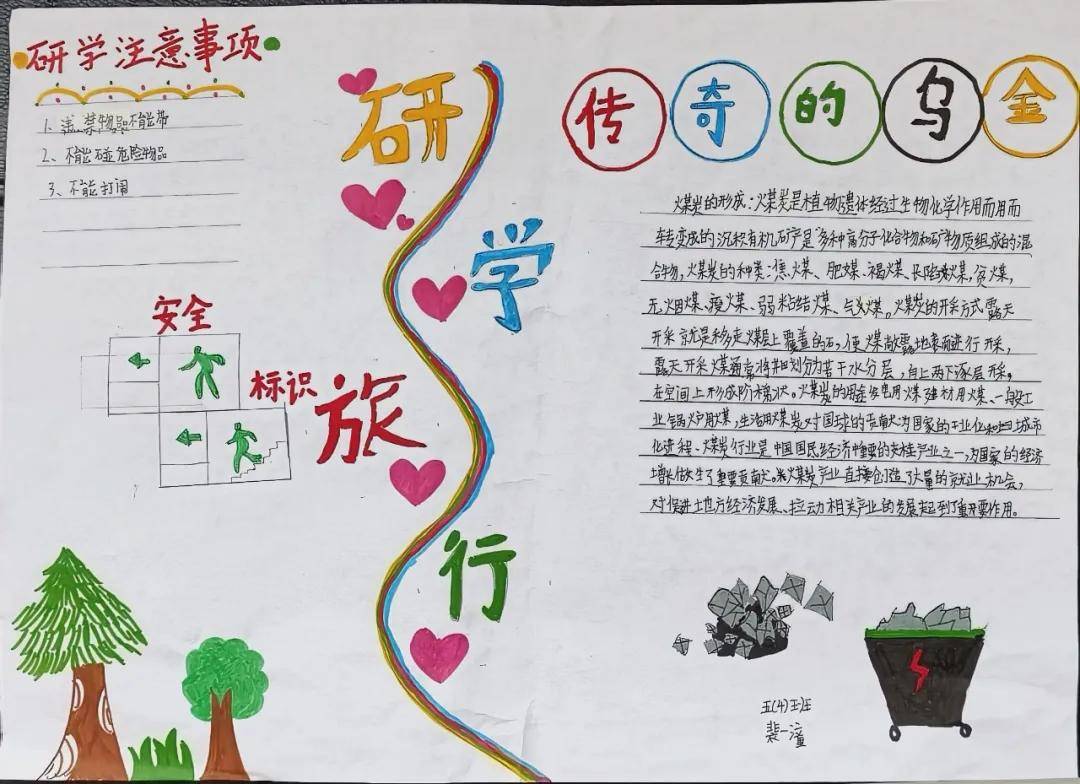 研学注意事项
1、违禁物品不能带
2、不能碰危险物品
3、不能打闹
安全
标识
研
学
旅
行
传奇的乌金
煤炭的形成：煤炭是植物遗体经过生物化学作用而用而
转变成的沉积有机矿产是多种高分子化合物和矿物质组成的混
合物，煤炭的种类：焦煤、肥煤、褐煤、长焰煤，贫煤，
无烟煤、瘦煤、弱粘结煤、气煤。煤炭的开采方式露天
开采就是移走煤层上覆盖的石，使煤敞露地表面进行开采，
露天开采煤通常将井田划分为若干水分层，自上而下逐层开采。
在空间上形成阶梯状。煤炭的用途发电用煤建材用煤、一般工
业锅炉用煤，生活用煤炭对国球的贡献为国家的工业化和城市
化进程、煤炭行业是中国国民经济中重要的支柱产业之一，为国家的经济
增长做生了重要贡献。煤炭产业直接创造了大量的就业机会，
对促进土也方经济发展、拉动相关产业的发展起到了重要作用。
五(4)班
裴一潼